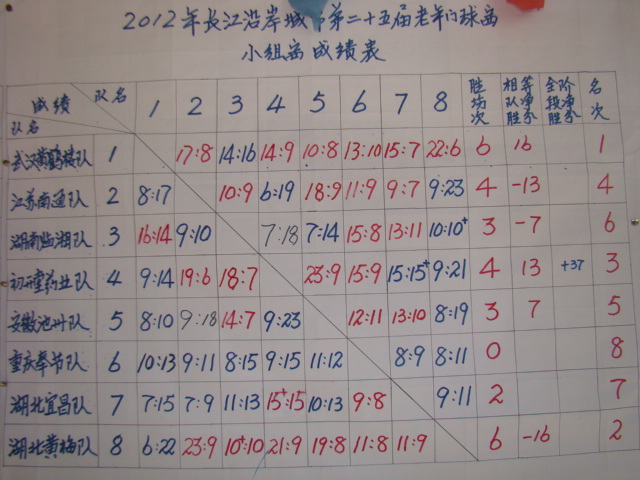 2012年长江沿岸城市第二十五届老年门球赛
小组赛成绩表
成绩 队名 1 2 3 4 5 6 7 8 胜场次 相等队净胜分 全阶段净胜分 名次
队名
武汉黄鹤楼队 1 17:8 14:16 14:9 10:8 13:10 15:7 22:6 6 16 1
江苏南通队 2 8:17 10:9 6:19 18:9 11:9 9:7 9:23 4 -13 4
湖南临湖队 3 16:14 9:10 7:18 7:14 15:8 13:11 10:10+ 3 -7 6
药业队 4 9:14 19:6 18:7 23:9 15:9 15:15+ 9:21 4 13 +37 3
安徽池州队 5 8:10 9:18 14:7 9:23 12:11 13:10 8:19 3 7 5
重庆奉节队 6 10:13 9:11 8:15 9:15 11:12 8:9 8:11 0 8
湖北宜昌队 7 7:15 7:9 11:13 15+:15 10:13 9:8 9:11 2 7
湖北黄梅队 8 6:22 23:9 10+:10 21:9 19:8 11:8 11:9 6 -16 2